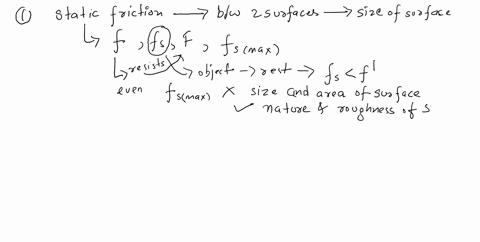 ① Static friction → b/w 2 surfaces → size of surface
↳ f, fs, F, fs(max)
↳ resists object → rest → fs < f'
even fs(max) × size and area of surface
✓ nature & roughness of S